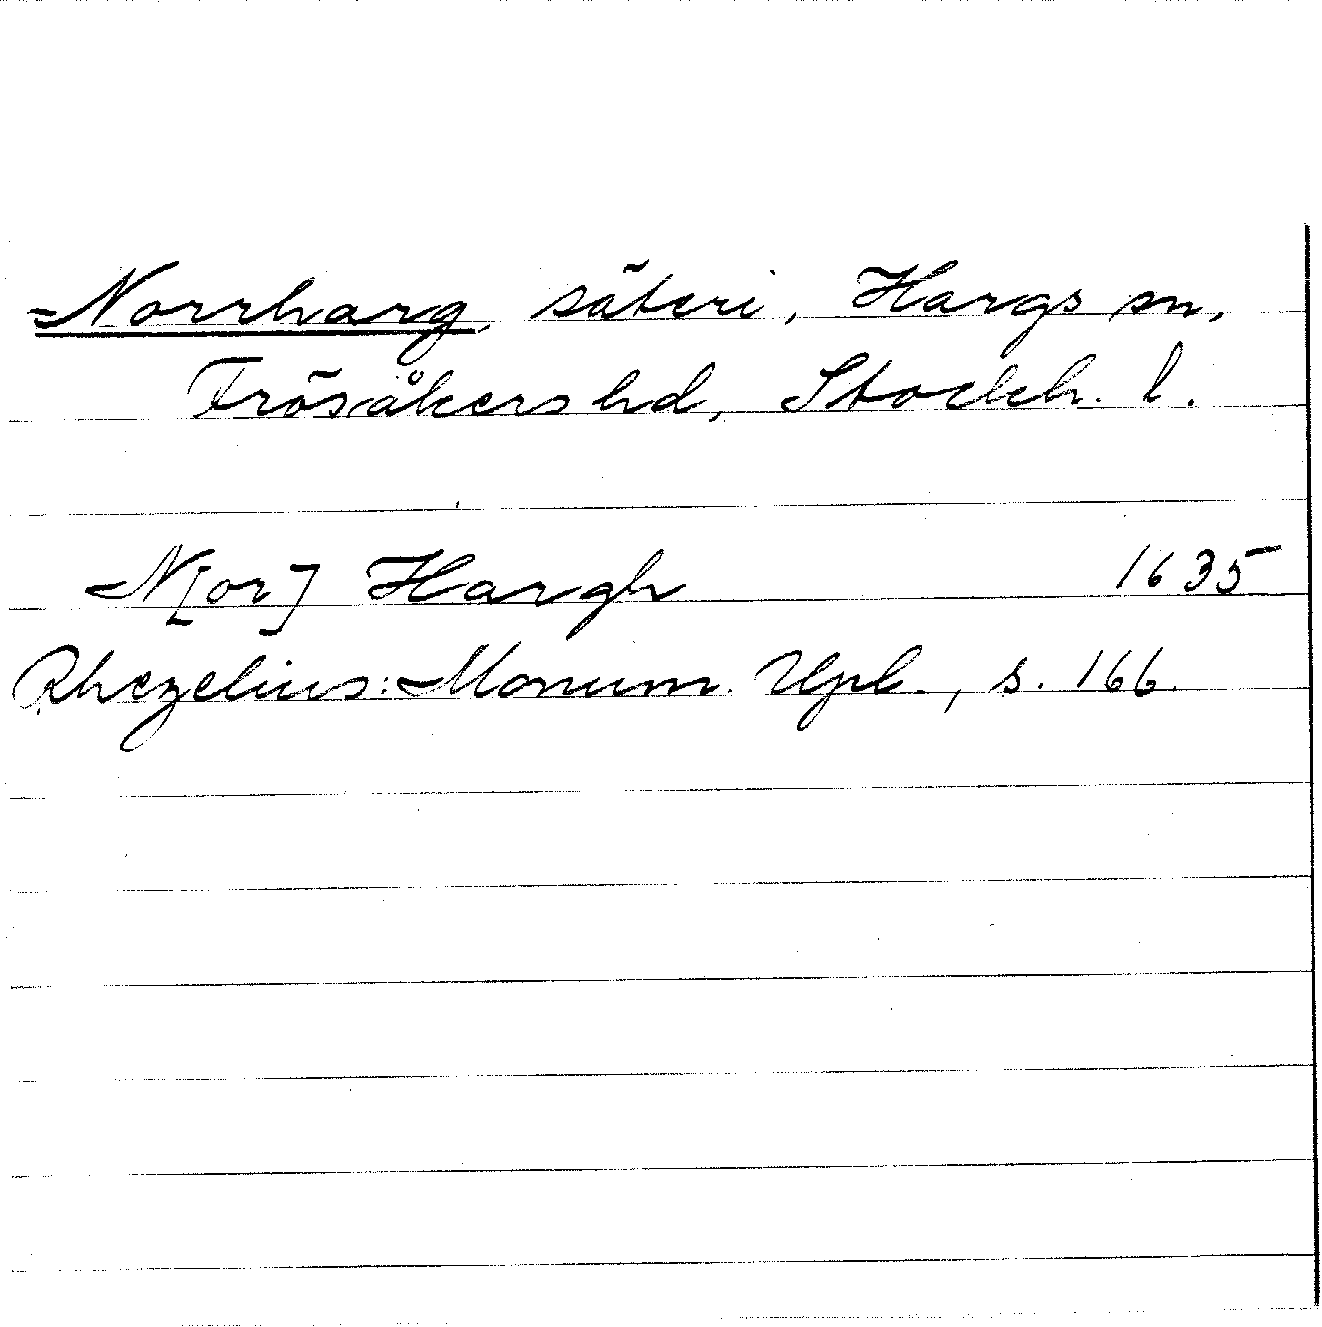 Norrharg, säteri, Hargs sn,
Frösåkers hd, Stockh. l.
N[or] Hargh 1635
Rhezelius: Monum. Upl., s. 166.